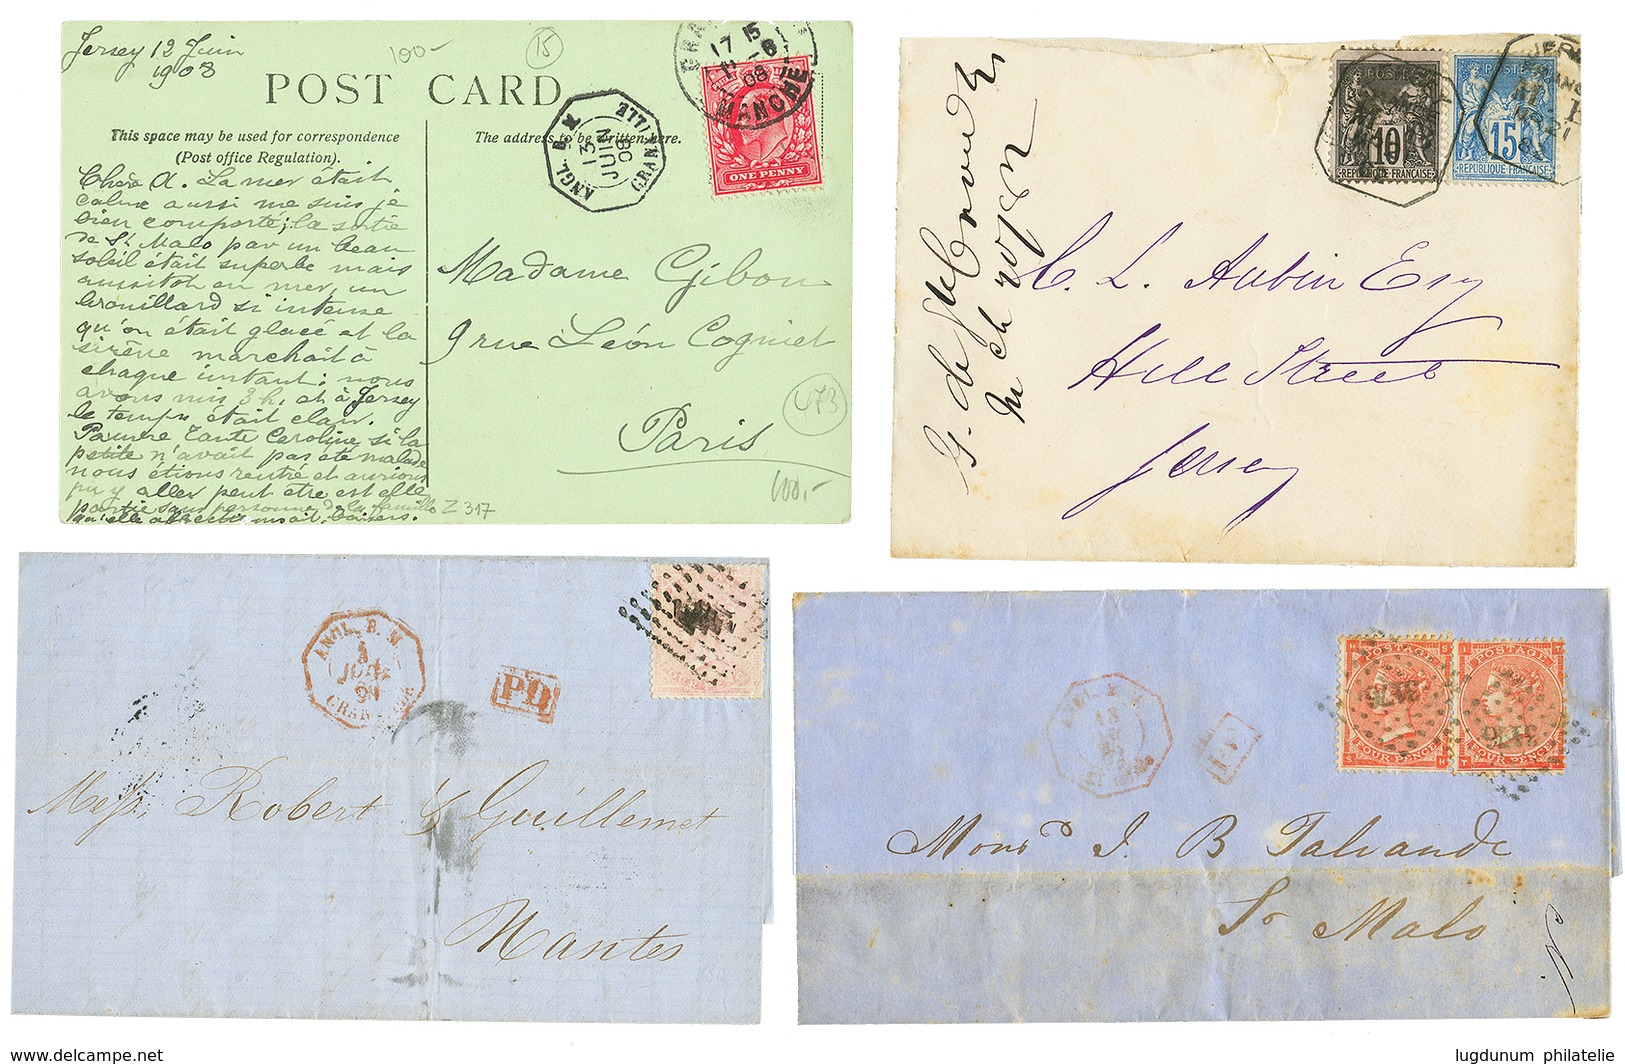 Jersey 12 Juin
1908
100-
15
POST CARD
This space may be used for correspondence
(Post office Regulation).
The address to be written here.
MANCHE
17 15
08
ONE PENNY
ANGL. B. M
13
JUIN
08
GRANVILLE
Chère A. La mer était
calme aussi me suis je
bien comporté; la sortie
de St Malo par un beau
soleil était superbe mais
aussitôt en mer, un
brouillard si intense
qu'on était glacé et la
sirène marchait à
chaque instant; nous
avons mis 3 h. et à Jersey
le temps était clair.
Pauvre Tante Caroline, si la
petite n'avait pas été malade
nous étions rentré et aurions
pu y aller peut être est elle
partie sans personne de la famille
Z 317
Madame Gibou
9 rue Léon Cogniet
Paris
473
100,-
POSTE
10
REPUBLIQUE FRANÇAISE
POSTE
15
REPUBLIQUE FRANÇAISE
C. L. Aubin Esq
Hill Street
Jersey
ANGL. B. M
P.D.
Mess. Robert & Guillemet
Nantes
POSTAGE
FOUR PENCE
3176
POSTAGE
FOUR PENCE
3176
Monsr J. B
St Malo
www.delcampe.net
lugdunum philatelie